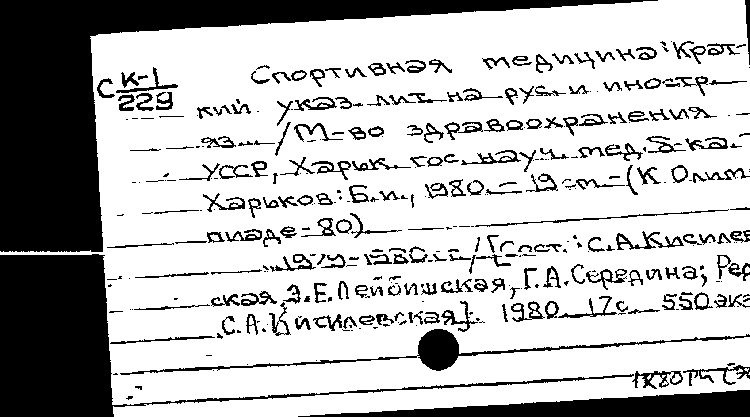 С К-1
229
Спортивная медицина: Крат-
кий указ. лит. на рус. и иностр.
яз... / М-во здравоохранения
УССР, Харьк. гос. науч. мед. б-ка.-
Харьков: Б.и., 1980. - 19 см - (К Олим-
пиаде-80).
...1979-1980 гг. / [Сост.: С.А.Кисилев
ская, Э.Е.Лейбишская, Г.А.Середина; Ред
С.А.Кисилевская]. 1980. 17с. 550 экз